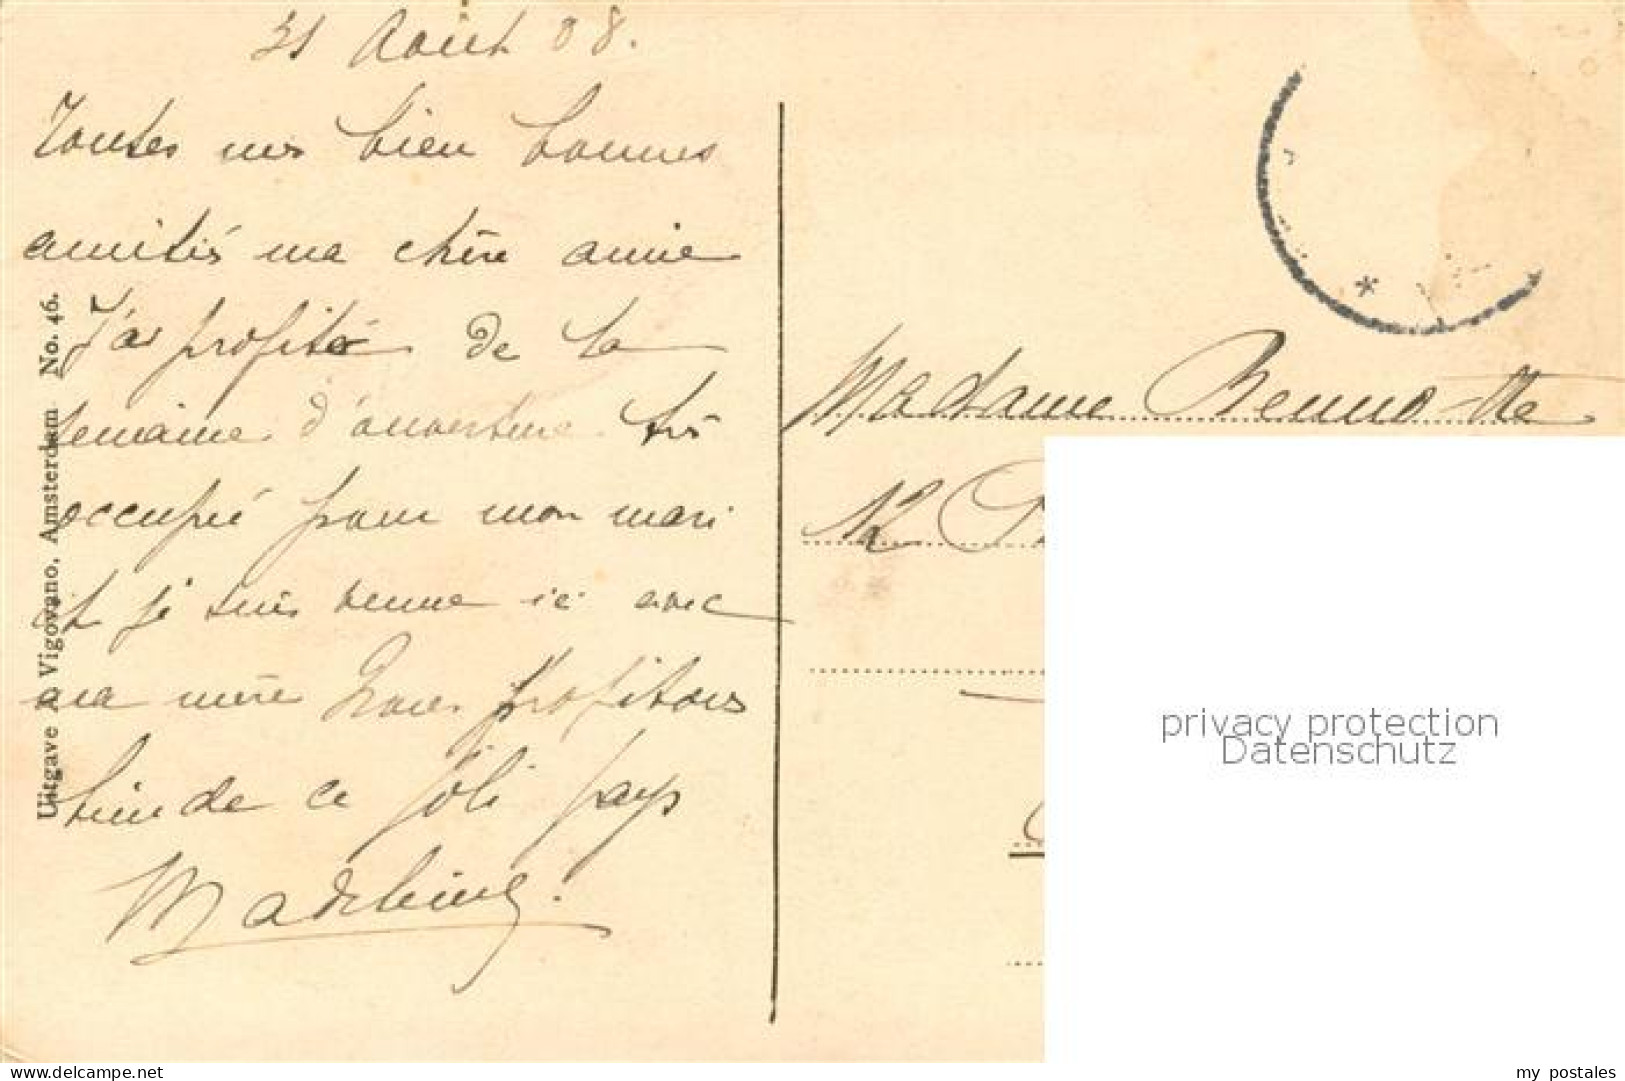 31 Août 08.
Toutes mes bien bonnes
amitiés ma chère amie
J'ai profité de la
semaine d'ouverture très
occupée pour mon mari
et je suis venue ici avec
ma mère Nous profitons
bien de ce joli pays
Madeleine.
Uitgave A Vigovano, Amsterdam No. 46.
Madame
12
privacy protection
Datenschutz
the-best-in-the-world
my_postales